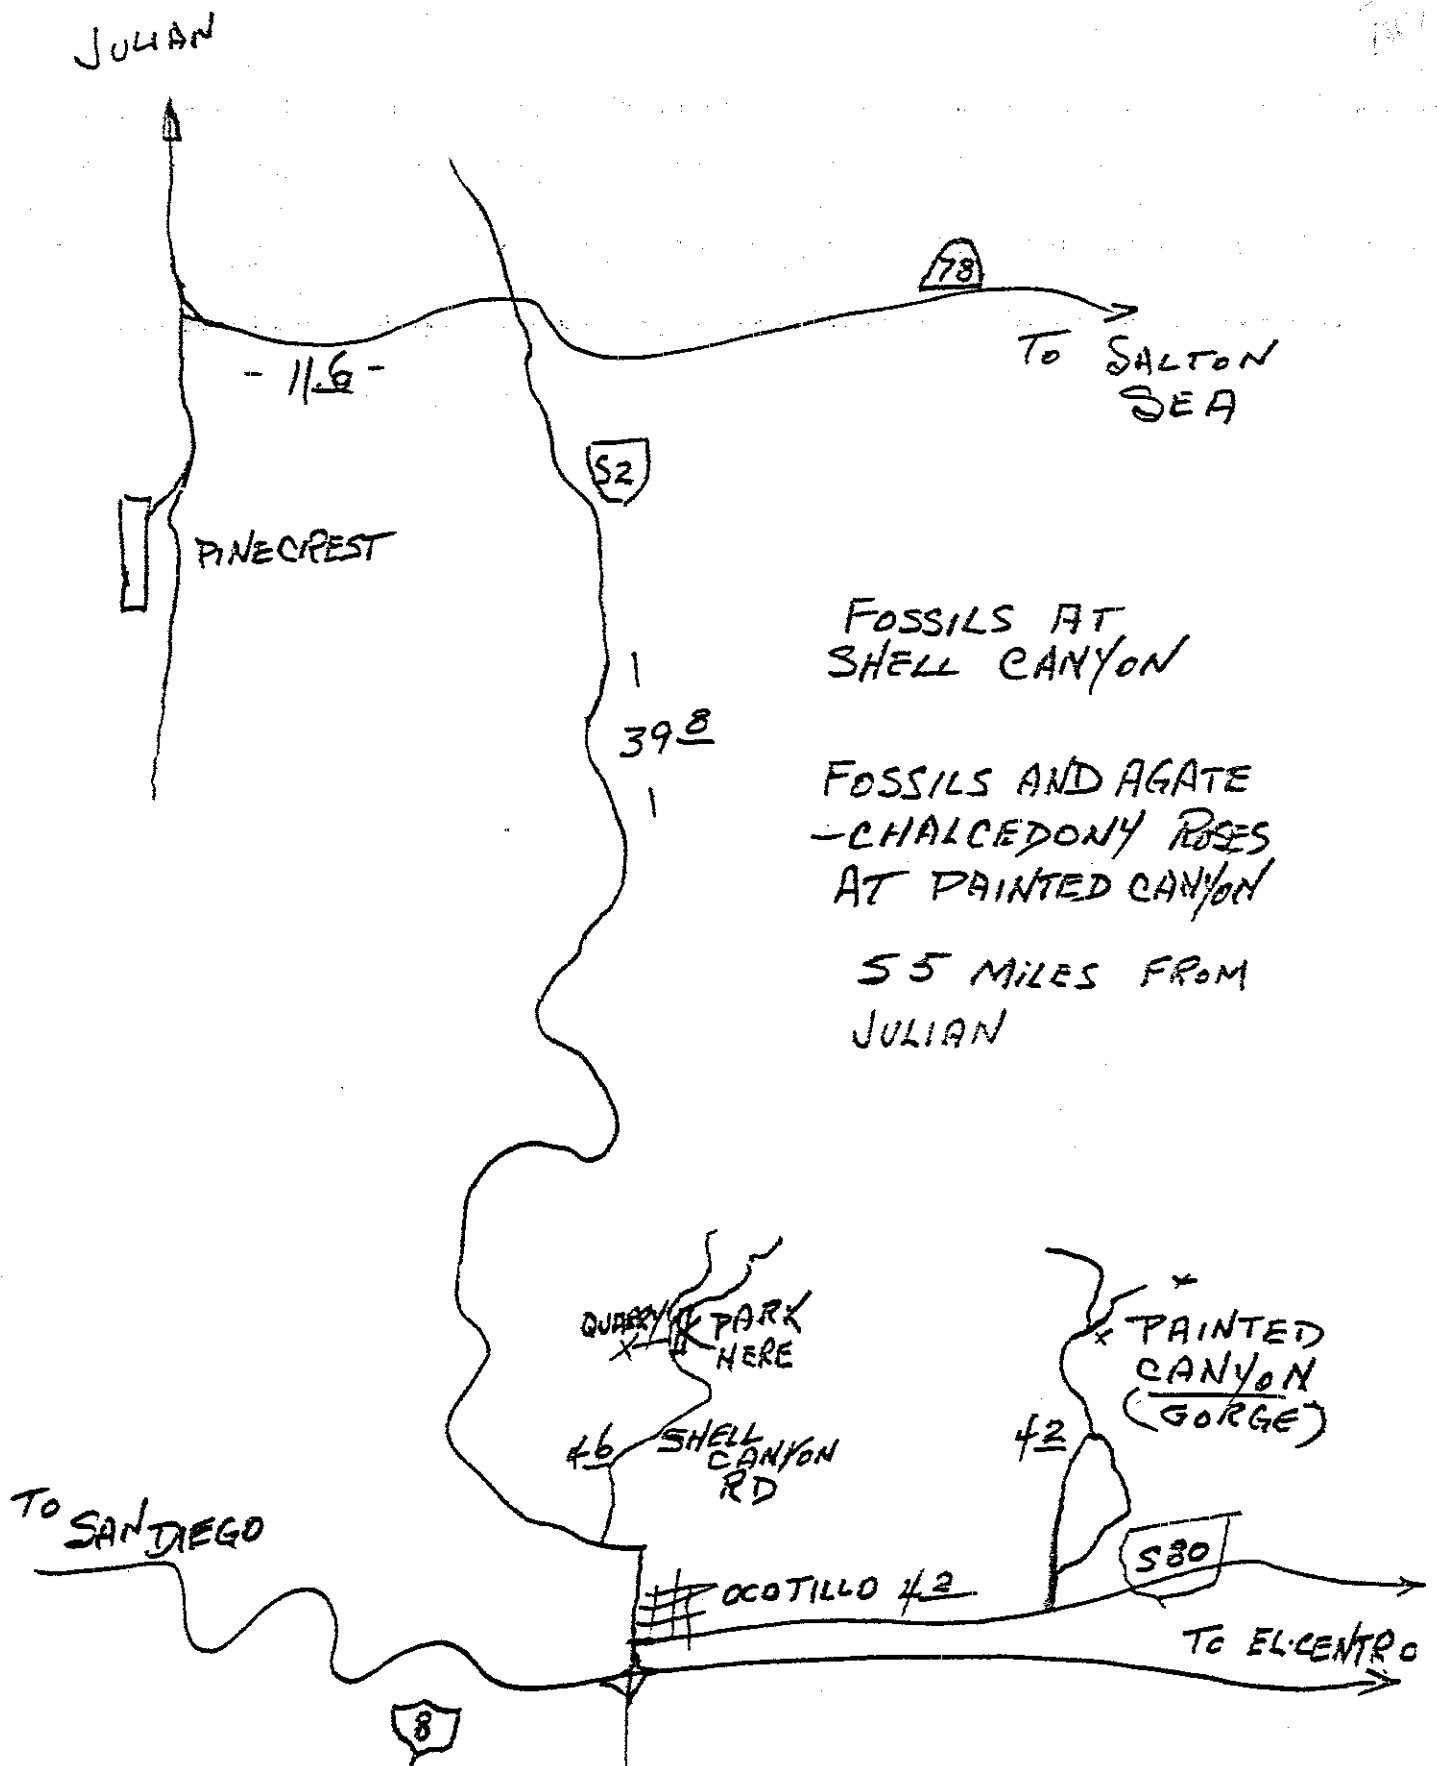 JULIAN
78
TO SALTON
SEA
- 11.6 -
S2
PINECREST
FOSSILS AT
SHELL CANYON
39 8
FOSSILS AND AGATE
-CHALCEDONY ROSES
AT PAINTED CANYON
55 MILES FROM
JULIAN
QUARRY
PARK
HERE
PAINTED
CANYON
(GORGE)
4 6
SHELL
CANYON
RD
4 2
TO
SAN DIEGO
S80
OCOTILLO 4 2
TO EL.CENTRO
8